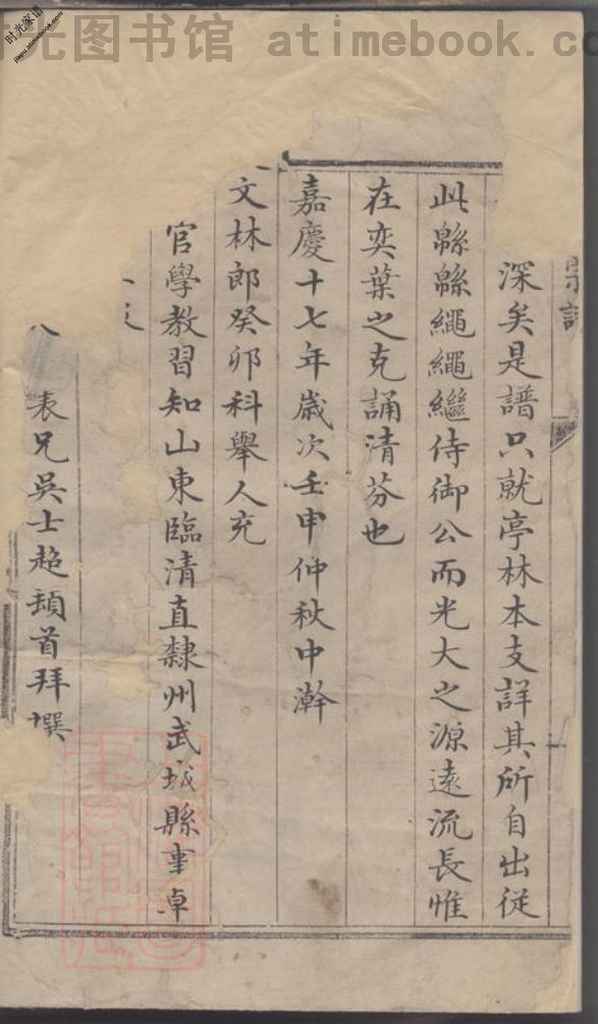 时光图书馆 atimebook.co
时光家谱
宗譜
深矣是譜只就亭林本支詳其所自出從
此緜緜繩繩繼侍御公而光大之源遠流長惟
在奕葉之克誦清芬也
嘉慶十七年歲次壬申仲秋中澣
文林郎癸卯科舉人充
官學教習知山東臨清直隸州武城縣事卓
表兄吳士超頓首拜撰